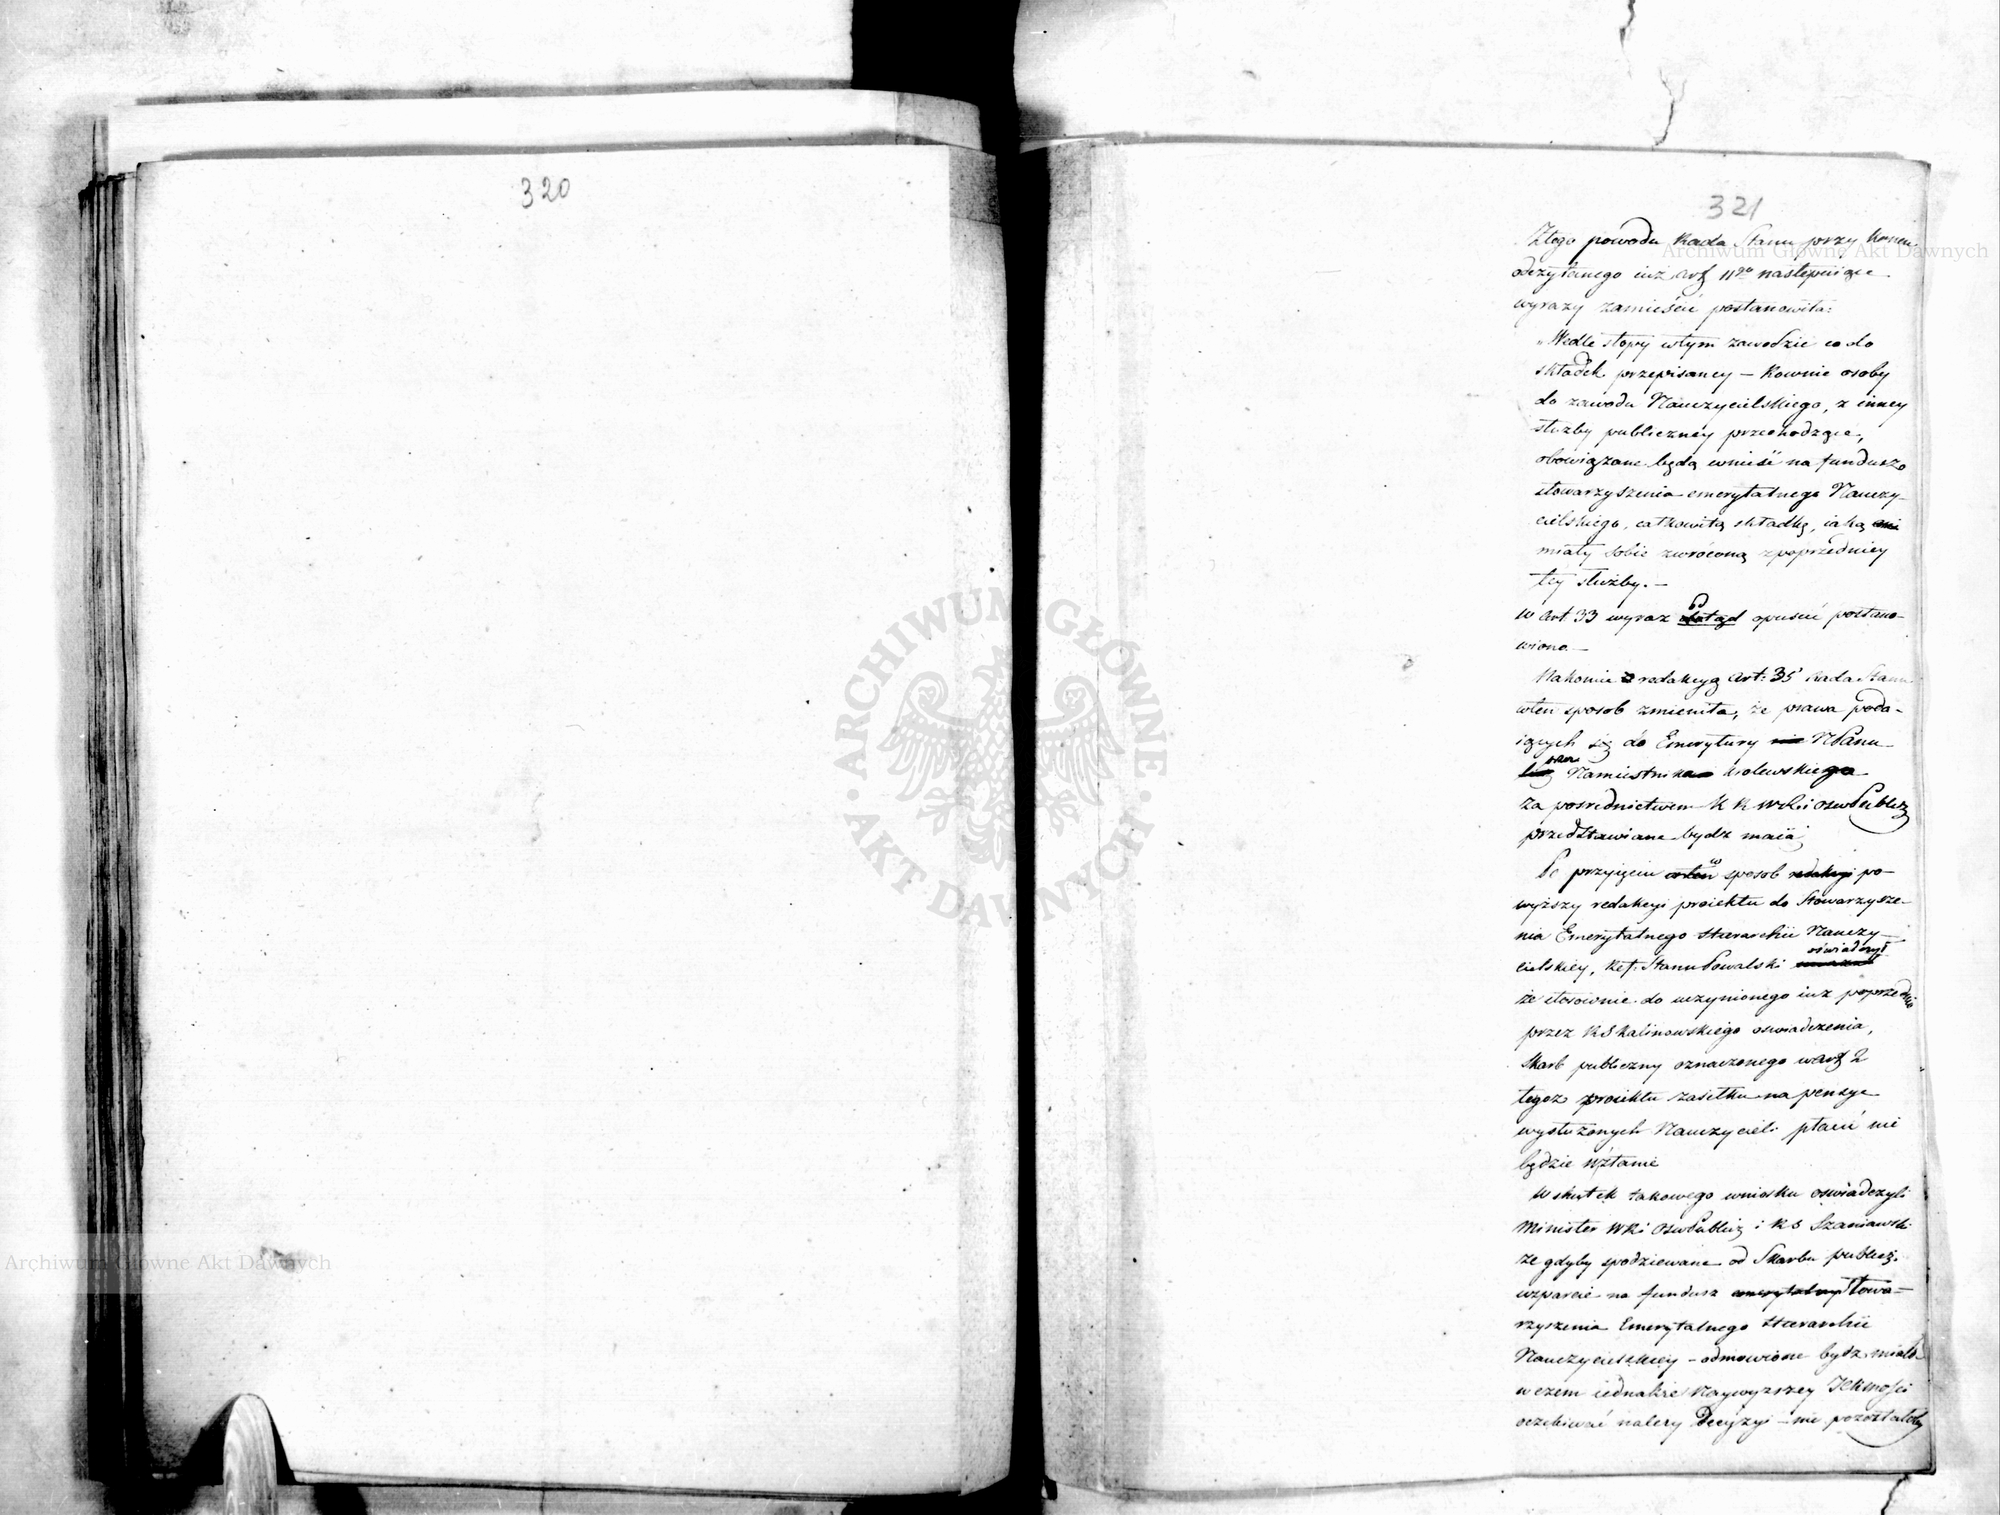 320
321
Z tego powodu Rada Stanu przy końcu
odczytanego iuż Art 11go następuiące
wyrazy zamieścić postanowiła:
„Wedle stopy w tym zawodzie co do
składek przepisaney – Rownie osoby
do zawodu Nauczycielskiego, z inney
służby publiczney przechodzące,
obowiązane będą wnieść na fundusz
stowarzyszenia emerytalnego Nauczy-
cielskiego, całkowitą składkę, iaką oni
miały sobie zwróconą z poprzedniey
tey służby. –
W Art 33 wyraz odtąd opuścić postano-
wiono. –
Nakoniec redakcyą Art: 35 Rada Stanu
w ten sposob zmieniła, że prawa poda-
iących się do Emerytury
Namiestnika Krolewskiego
za pośrednictwem K R W R i Osw Publicz
przedstawiane bydz maią
Po przyięciu w sposob redakcyi po-
wyższy redakcyi proiektu do Stowarzysze-
nia Emerytalnego Hierarchii Nauczy-
cielskiey, Ref. Stanu Kowalski oświadczył
że stosownie do uczynionego iuż poprzednio
przez RS Kalinowskiego oswiadczenia,
Skarb publiczny oznaczonego w art 2
tegoż proiektu zasiłku na pensye
wysłużonych Nauczycieli płacić nie
będzie w stanie
W skutek takowego wniosku oswiadczyli
Minister W R i Osw Publicz i RS Szaniawski
że gdyby spodziewane od Skarbu publicz.
wsparcie na fundusz emerytalny Stowa-
rzyszenia Emerytalnego Hierarchii
Nauczycielskiey – odmowione bydz miało
w czem iednakże Naywyższey JKMości
oczekiwać należy Decyzyi – nie pozostałoby
ARCHIWUM GŁÓWNE
AKT DAWNYCH
Archiwum Główne Akt Dawnych
Archiwum Główne Akt Dawnych